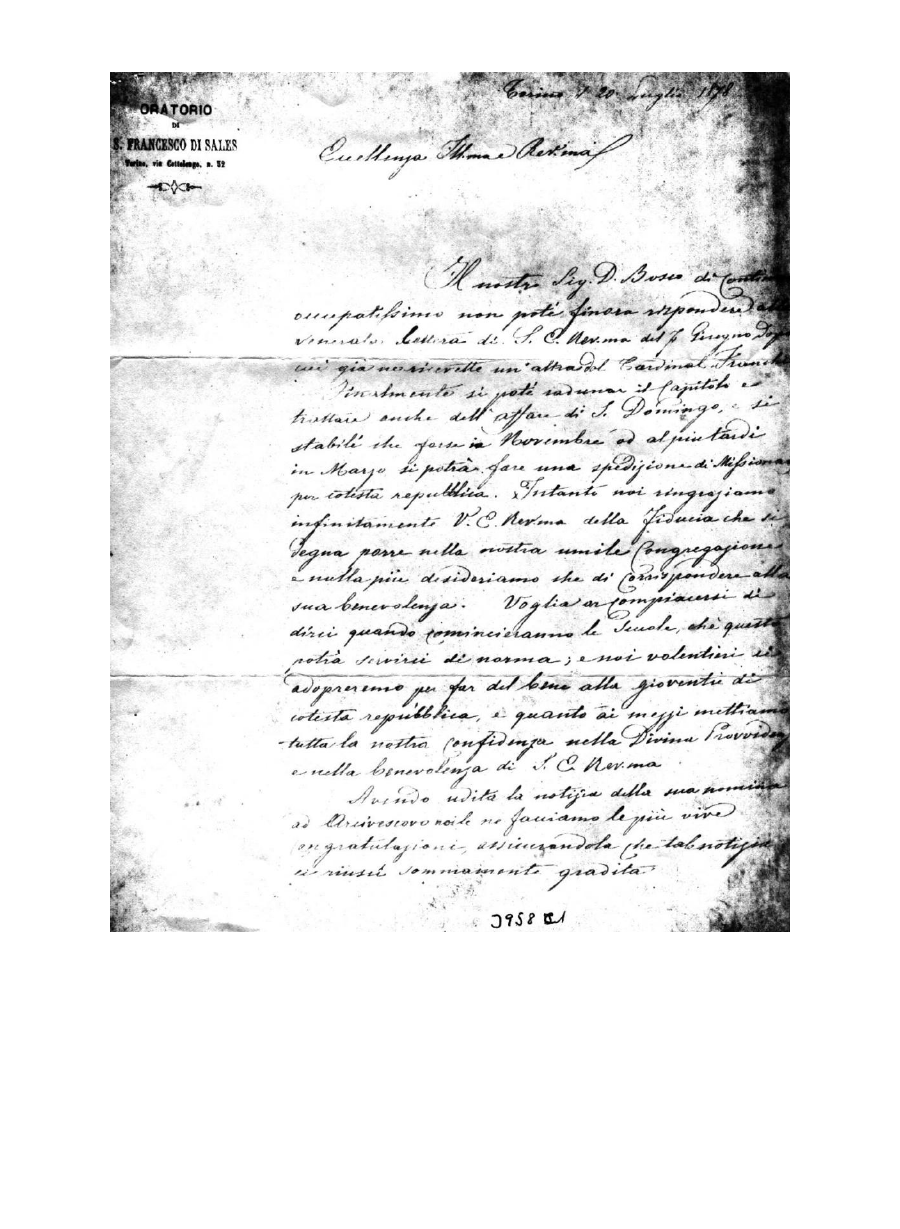 ORATORIO
DI
S. FRANCESCO DI SALES
Torino, via Cottolengo, n. 32
Torino, 20 Luglio 1878
Eccellenza Ill.ma e Rev.ma
Il nostro Sig. D. Bosco di
occupatissimo non poté finora rispondere
venerata lettera di S. E. Rev.ma del Giugno
cui già ne ricevette un'altra del Cardinal Franchi
Finalmente si poté radunar il Capitolo e
trattare anche dell'affare di S. Domingo, e si
stabilì che forse in Novembre od al più tardi
in Marzo si potrà fare una spedizione di Missionar
per cotesta repubblica. Intanto noi ringraziamo
infinitamente V. E. Rev.ma della fiducia che si
degna porre nella nostra umile Congregazione
e nulla più desideriamo che di corrispondere alla
sua benevolenza. Voglia or compiacersi di
dirci quando comincieranno le Scuole, chè questo
potrà servirci di norma; e noi volentieri ci
adopreremo per far del bene alla gioventù di
cotesta repubblica, e quanto ai mezzi mettiamo
tutta la nostra confidenza nella Divina Provviden
e nella benevolenza di S. E. Rev.ma
Avendo udita la notizia della sua nomina
ad Arcivescovo noi le ne facciamo le più vive
congratulazioni, assicurandola che tal notizia
ci riuscì sommamente gradita